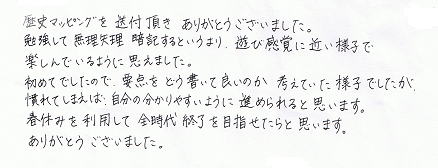 歴史マッピングを送付頂きありがとうございました。
勉強して無理矢理暗記するというより、遊び感覚に近い様子で
楽しんでいるように思えました。
初めてでしたので、要点をどう書いて良いのか考えていた様子でしたが、
慣れてしまえば、自分の分かりやすいように進められると思います。
春休みを利用して全時代終了を目指せたらと思います。
ありがとうございました。